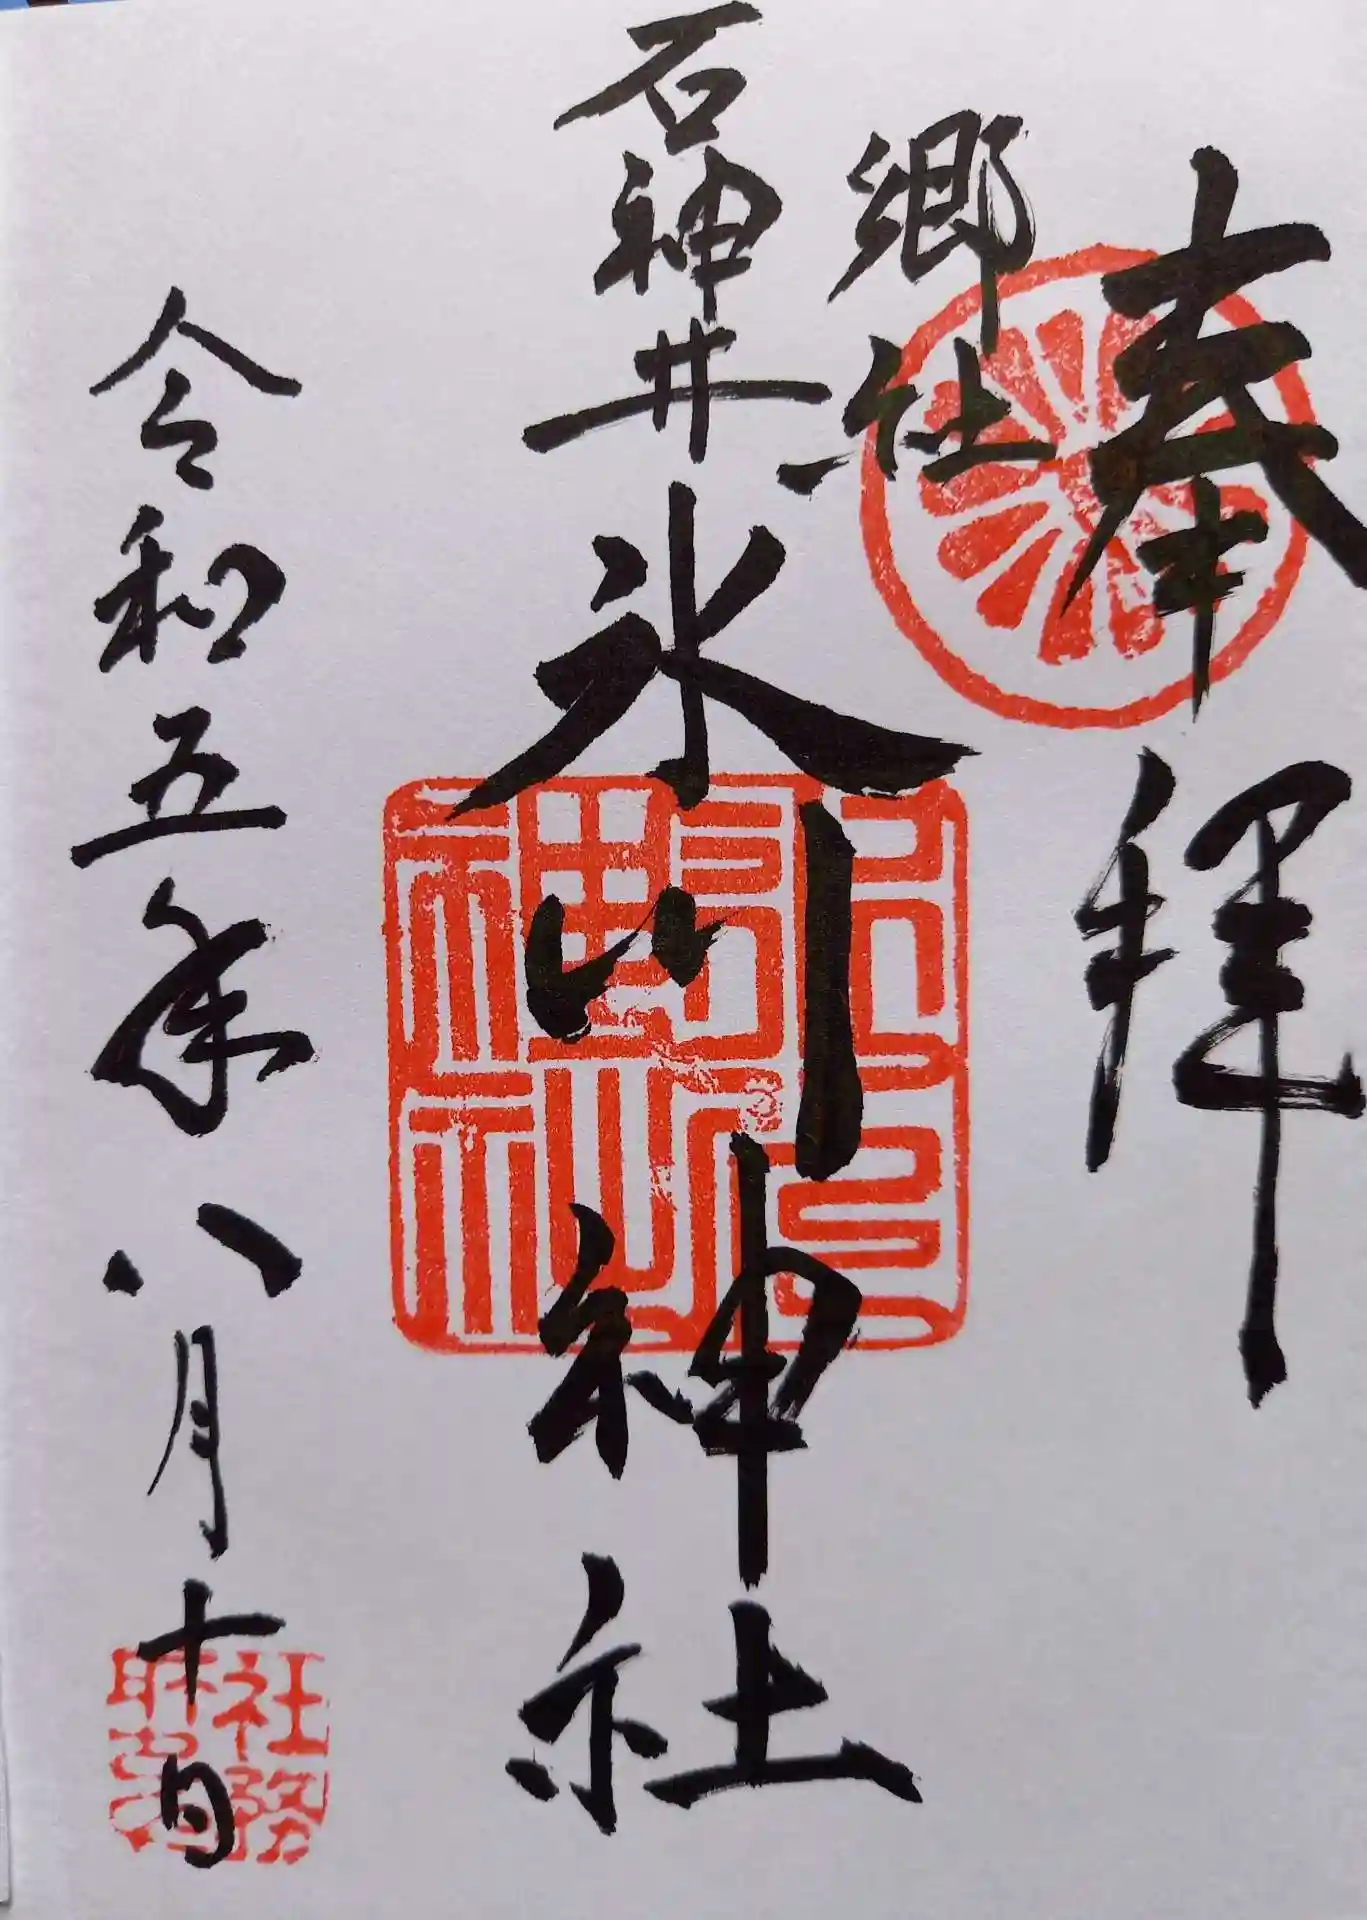 奉拝
郷社
石神井
氷川神社
令和五年八月十日
社務